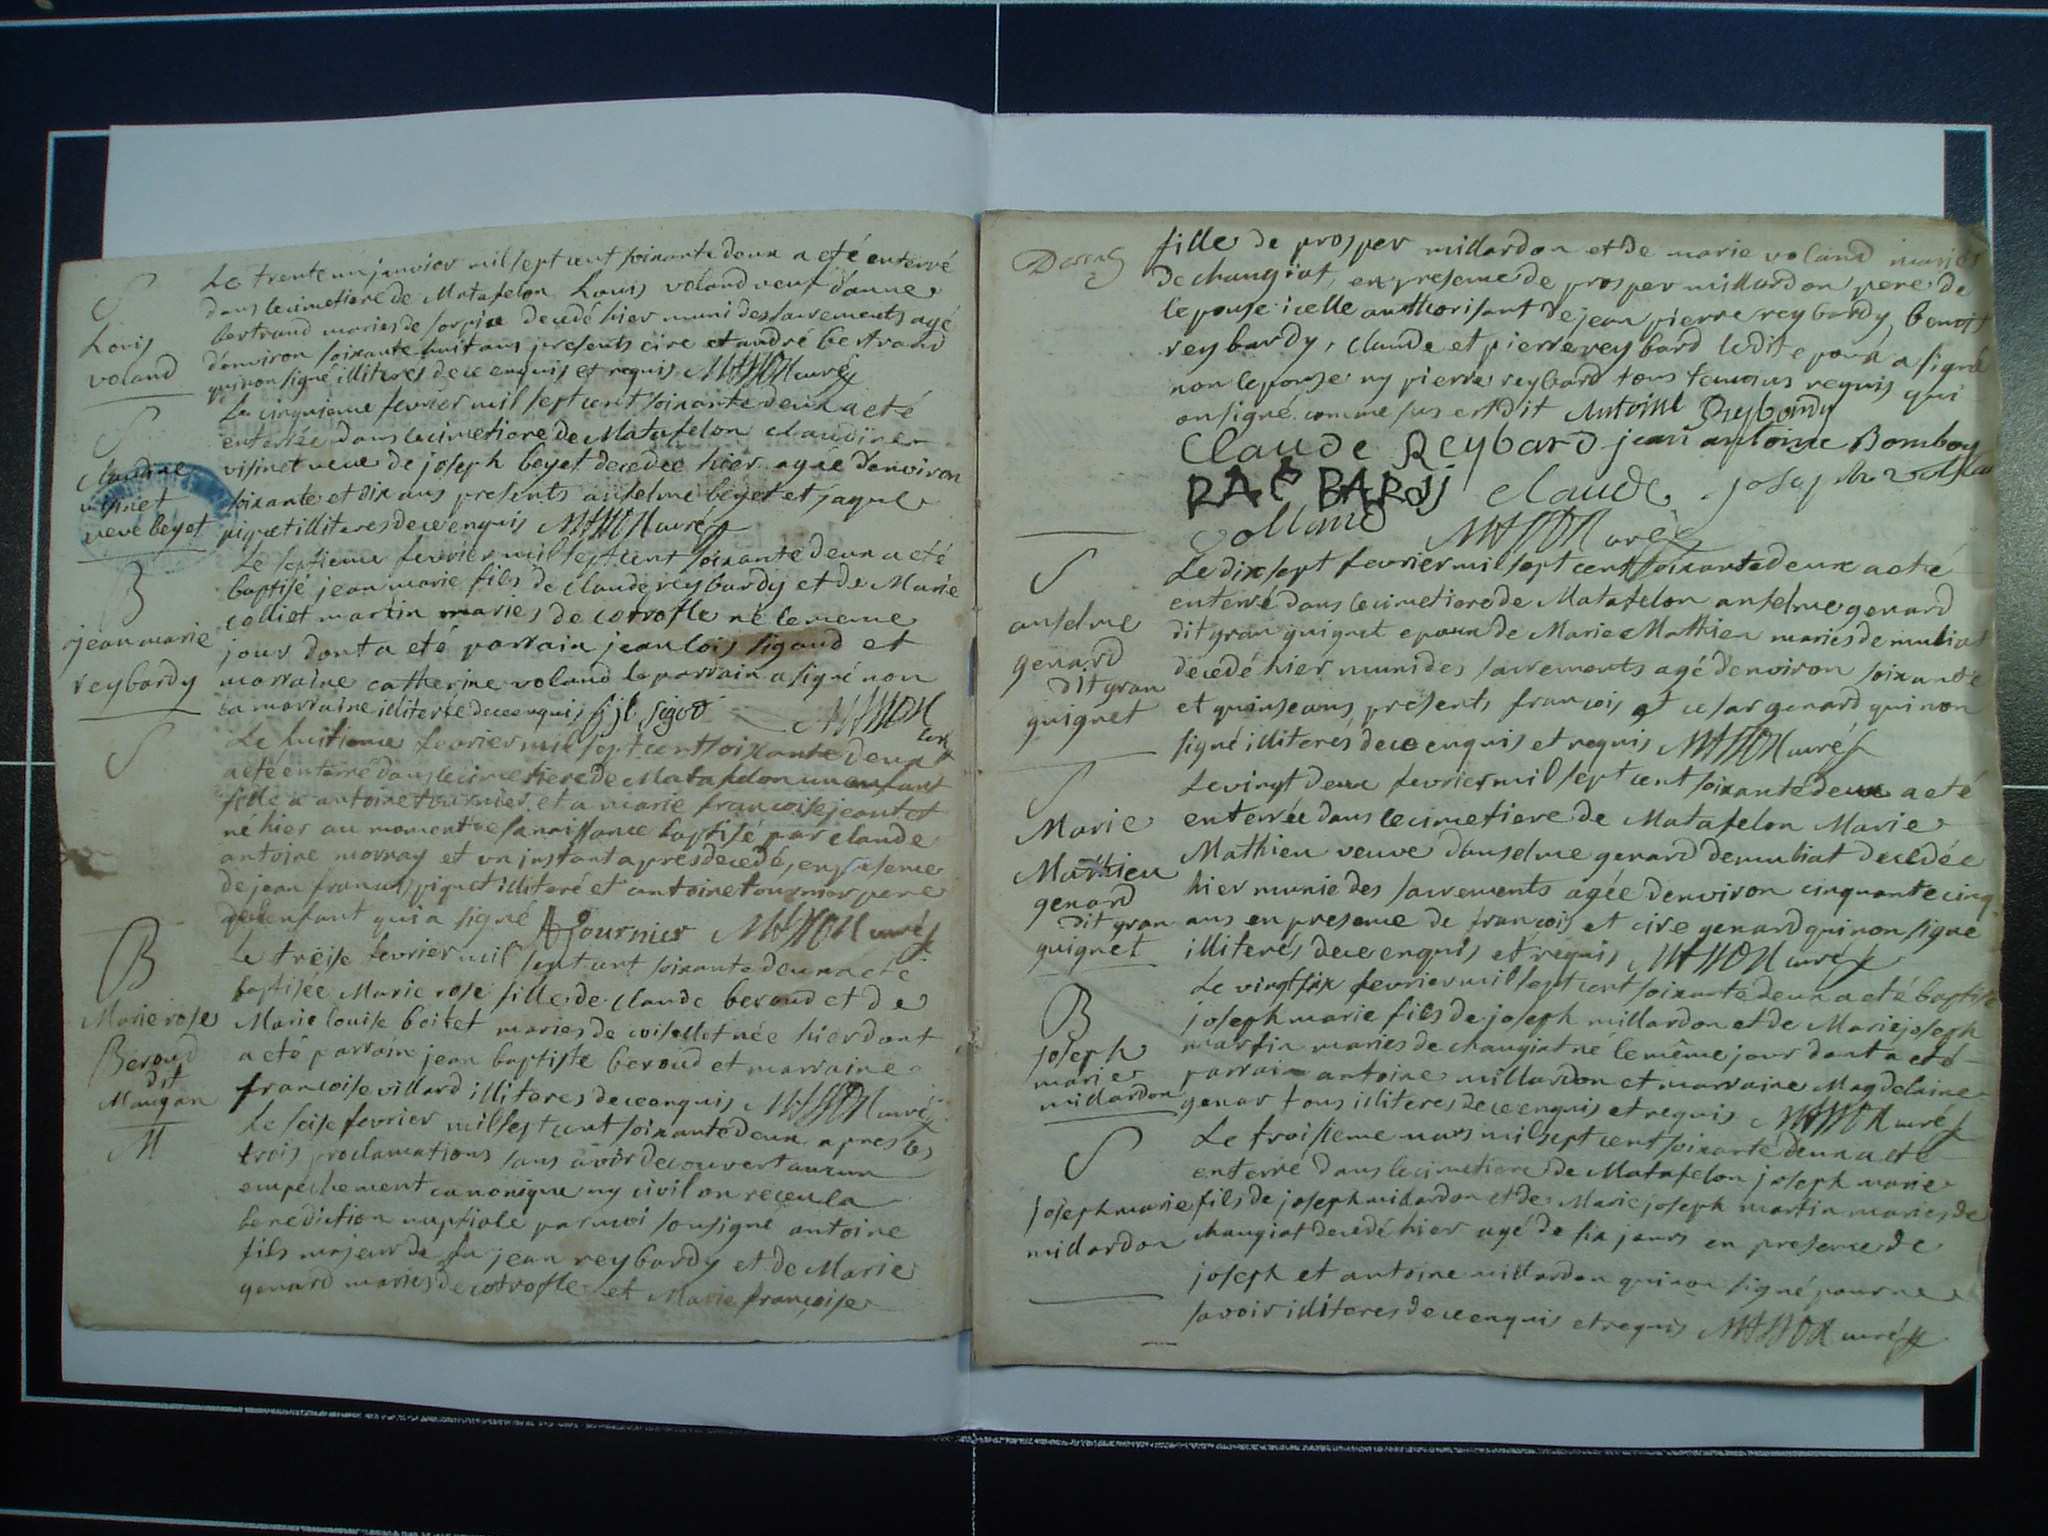 S
Louis
voland
Le trente un janvier mil sept cent soixante deux a eté enterré
dans le cimetiere de Matafelon Louis voland veuf d'anne
bertrand mariés de decedé hier muni des sacrements agé
d'environ soixante huit ans presents cire et andré bertrand
qui non signé illiteres de ce enquis et requis MASSON curé
S
Claudine
visinet
veve beyet
Le cinquieme fevrier mil sept cent soixante deux a eté
enterrée dans le cimetiere de Matafelon claudine
visinet veue de joseph beyet decedée hier agée d'environ
soixante et dix ans presents anselme beyet et jaque
piquet illiteres de ce enquis MASSON curé
B
jean marie
reybardy
Le septieme fevrier mil sept cent soixante deux a eté
baptisé jean marie fils de claude reybardy et de Marie
colliet martin mariés de corrofle né le meme
jour dont a eté parrain jean lois sigaud et
marraine catherine voland le parrain a signé non
la marraine illiterée de ce enquis j l sigod MASSON
curé
S
Le huitieme fevrier mil sept cent soixante deux
a eté enterré dans le cimetiere de Matafelon un enfant
fille a antoine tournier et a marie francoise jeantet
né hier au moment de sa naissance baptisé par claude
antoine mornay et un instant apres decedé, en presence
de jean francois piquet illiteré et antoine tournier pere
de l'enfant qui a signé A Tournier MASSON curé
B
Marie rose
Beroud
dit
Maugan
Le treise fevrier mil sept cent soixante deux a eté
baptisée Marie rose fille de claude beroud et de
Marie louise boitet mariés de coiselet née hier dont
a eté parrain jean baptiste beroud et marraine
francoise villard illiteres de ce enquis MASSON curé
M
Le seise fevrier mil sept cent soixante deux apres les
trois proclamations sans avoir decouvert aucun
empechement canonique ny civil on receu la
benediction nuptiale par moi sousigné antoine
fils majeur de fu jean reybardy et de Marie
genard mariés de corrofle et Marie françoise
fille de prosper millardon et de marie voland mariés
de changiat, en presence de prosper millardon pere de
l'epouse icelle authorisant de jean pierre reybardy, benoit
reybardy, claude et pierre reybard ledit epoux a signé
non l'epouse ny pierre reybard tous temoins requis qui
on signé comme sus est dit Antoine Reybardy
Claude Reybard jean antoine Bomboy
claude joseph
MASSON curé
S
anselme
genard
dit gran
guignet
Le dix sept fevrier mil sept cent soixante deux a eté
enterré dans le cimetiere de Matafelon anselme genard
dit gran guignet epoux de Marie Mathieu mariés de muliat
decedé hier muni des sacrements agé d'environ soixante
et quinse ans, presents francois et cesar genard qui non
signé illiteres de ce enquis et requis MASSON curé
S
Marie
Mathieu
genard
dit gran
guignet
Le vingt deux fevrier mil sept cent soixante deux a eté
enterrée dans le cimetiere de Matafelon Marie
Mathieu veuve d'anselme genard de muliat decedée
hier munie des sacrements agée d'environ cinquante cinq
ans en presence de francois et cire genard qui non signé
illiteres de ce enquis et requis MASSON curé
B
joseph
marie
millardon
Le vingt six fevrier mil sept cent soixante deux a eté baptisé
joseph marie fils de joseph millardon et de Marie joseph
martin mariés de changiat né le même jour dont a eté
parrain antoine millardon et marraine Magdelaine
genar tous illiteres de ce enquis et requis MASSON curé
S
joseph marie
millardon
Le troisieme mars mil sept cent soixante deux a eté
enterré dans le cimetiere de Matafelon joseph marie
fils de joseph millardon et de Marie joseph martin mariés de
changiat decedé hier agé de six jours en presence de
joseph et antoine millardon qui non signé pour ne
savoir illiteres de ce enquis et requis MASSON curé